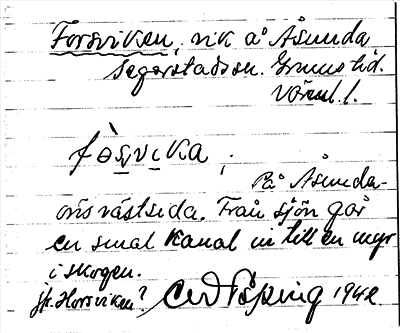 Forsviken, vik å Åsunda
Segerstads sn. Grums hd.
Värml. l.
fòsvika ;
På Åsunda-
öns västsida. Från sjön går
en smal kanal in till en myr
i skogen.
jfr. Horsviken? 1942